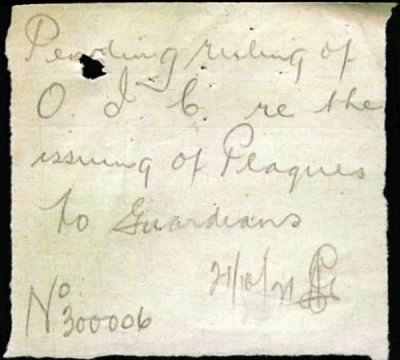 Pending ruling of
O. I C. re the
issuing of Plaques
to Guardians
21/10/21
No 300006